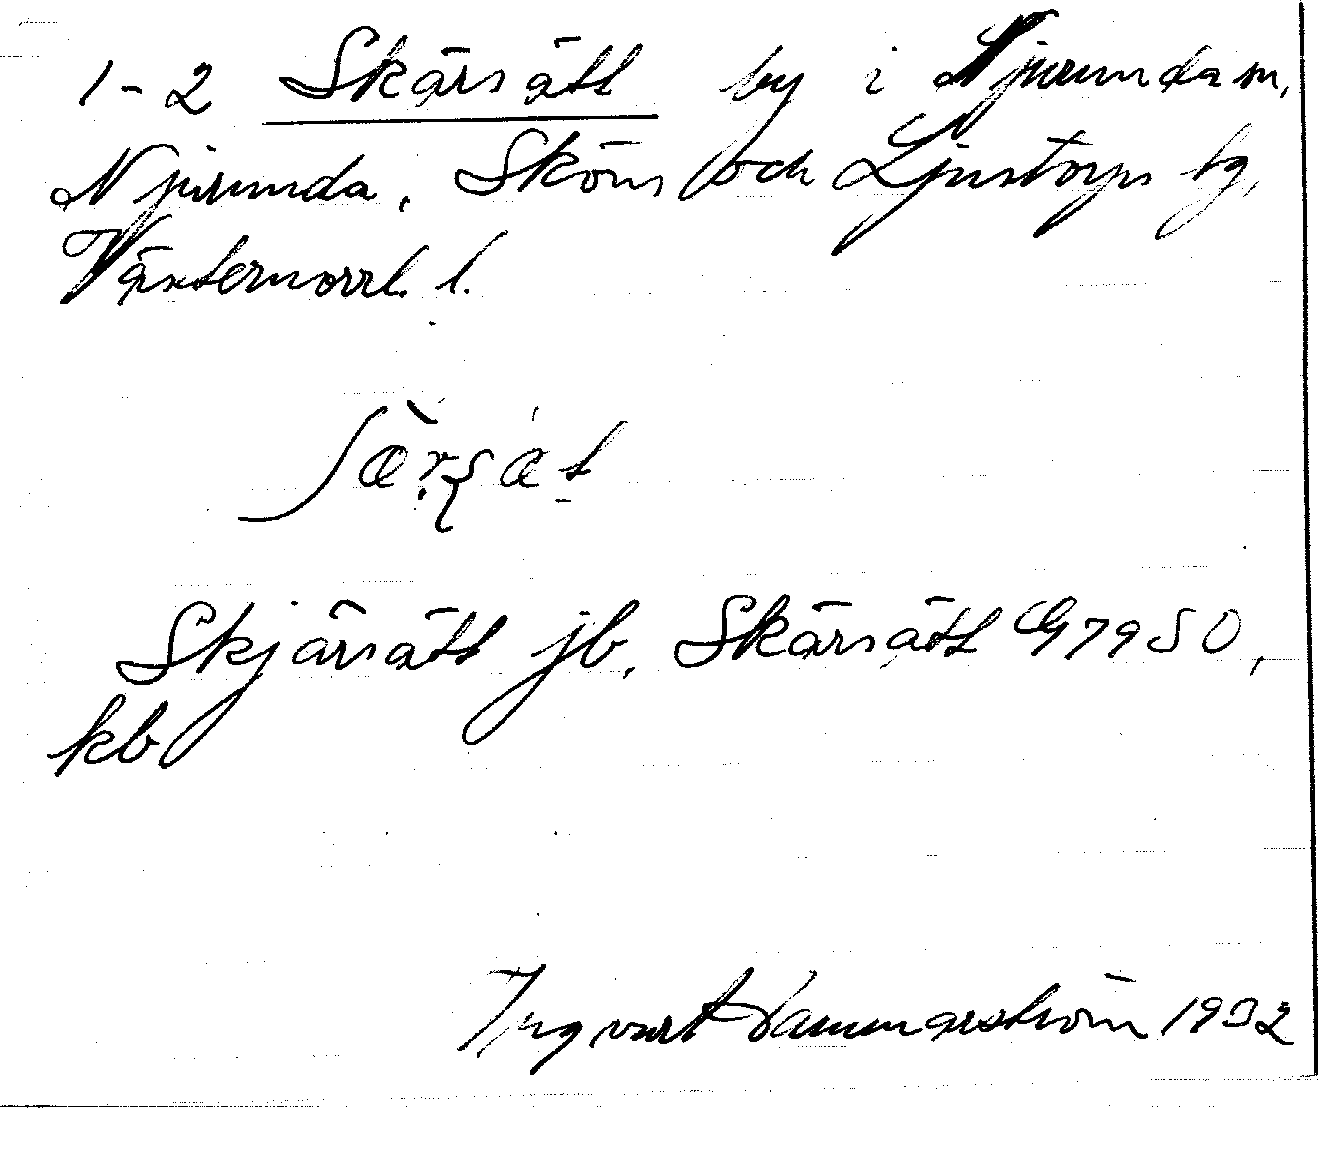 1-2 Skärsätt by i Njurunda sn,
Njurunda, Sköns och Ljustorps tg,
Västernorrl. l.
Skjärsätt jb, Skärsätt G7950,
kb
Ingvart Hammarström 1932